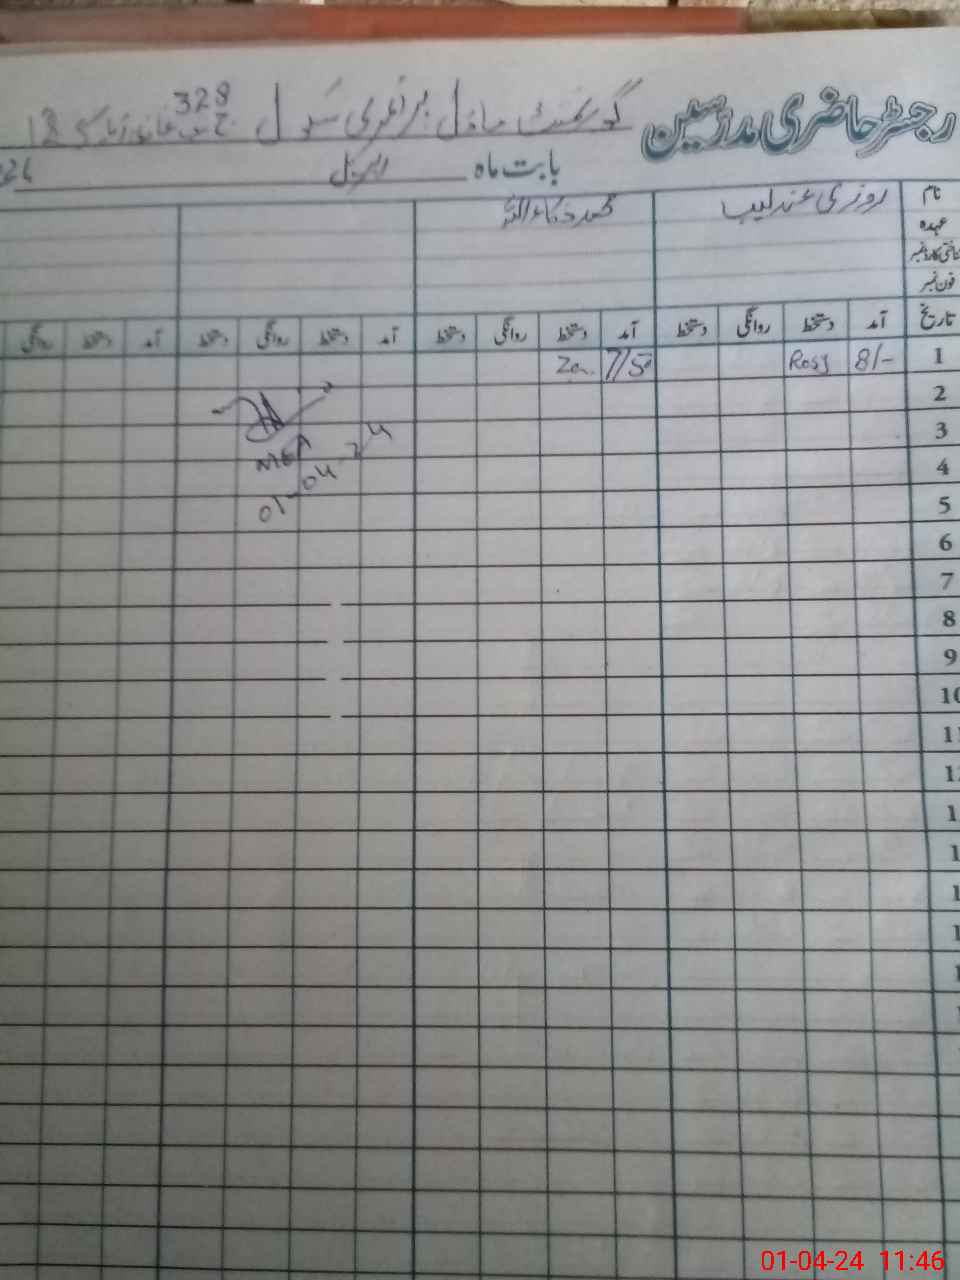 رجسٹر حاضری مدرسین گورنمنٹ ماڈل پرائمری سکول 328
بابت ماہ اپریل
نام روزی عندلیب محمد ثناءاللہ
عہدہ
شناختی کارڈ نمبر
فون نمبر
تاریخ آمد دستخط روانگی دستخط آمد دستخط روانگی دستخط آمد دستخط روانگی دستخط آمد دستخط روانگی
1 8/- Rosy 7/50
2
3
MEA
4
01-04-24
5
6
7
8
9
10
01-04-24 11:46